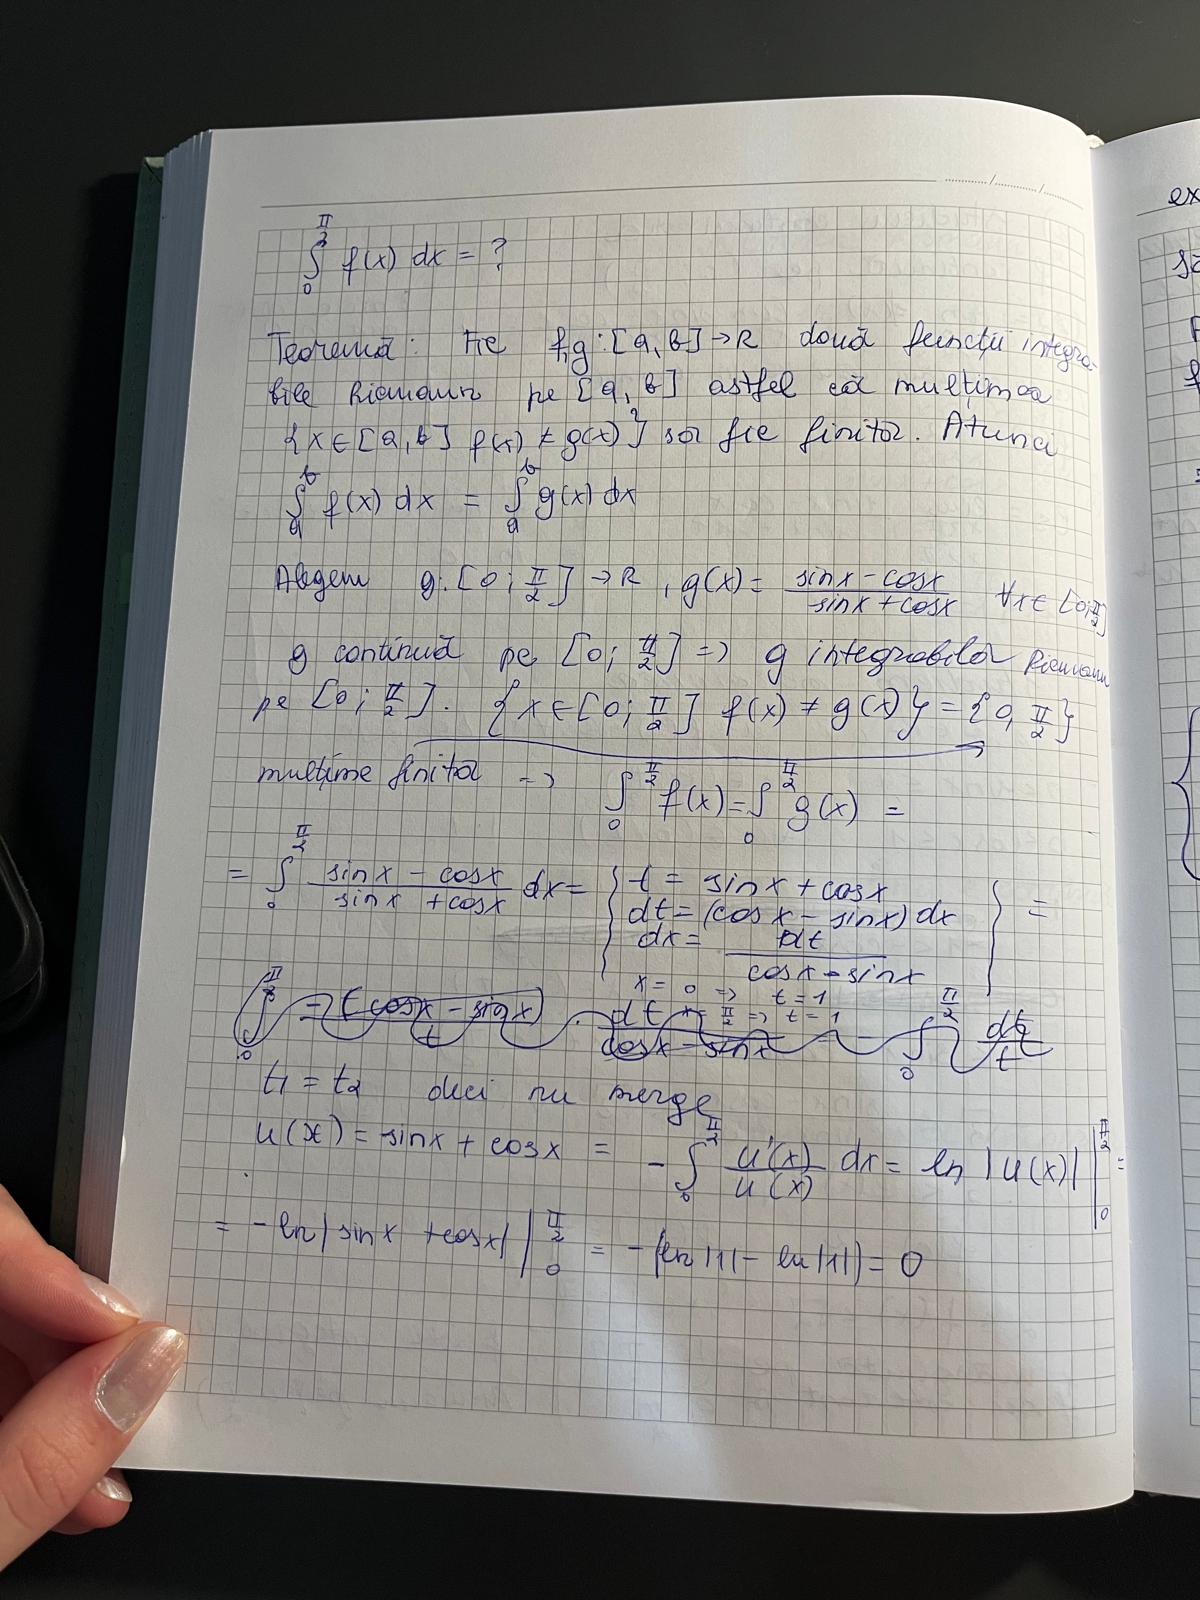 ∫₀^{π/2} f(x) dx = ?
Teoremă: Fie f,g:[a,b]→R două funcții integra-
bile Riemann pe [a,b] astfel că mulțimea
{x∈[a,b] f(x) ≠ g(x)} să fie finită. Atunci
∫ₐᵇ f(x) dx = ∫ₐᵇ g(x) dx
Alegem g:[0; π/2] → R, g(x) = (sinx - cosx)/(sinx + cosx) ∀x∈[0; π/2]
g continuă pe [0; π/2] => g integrabilă Riemann
pe [0; π/2]. {x∈[0; π/2] f(x) ≠ g(x)} = {0, π/2}
mulțime finită => ∫₀^{π/2} f(x) = ∫₀^{π/2} g(x) =
= ∫₀^{π/2} (sinx - cosx)/(sinx + cosx) dx = { t = sinx + cosx
dt = (cosx - sinx) dx
dx = dt/(cosx - sinx) } =
x = 0 => t = 1
x = π/2 => t = 1
∫₀^{π/2} -(cosx - sinx)/t · dt/(cosx - sinx) = - ∫₀^{π/2} dt/t
t₁ = t₂ deci nu merge
u(x) = sinx + cosx = - ∫₀^{π/2} u'(x)/u(x) dx = ln |u(x)| |₀^{π/2} =
= - ln|sinx + cosx| |₀^{π/2} = - (ln|1| - ln|1|) = 0
ex